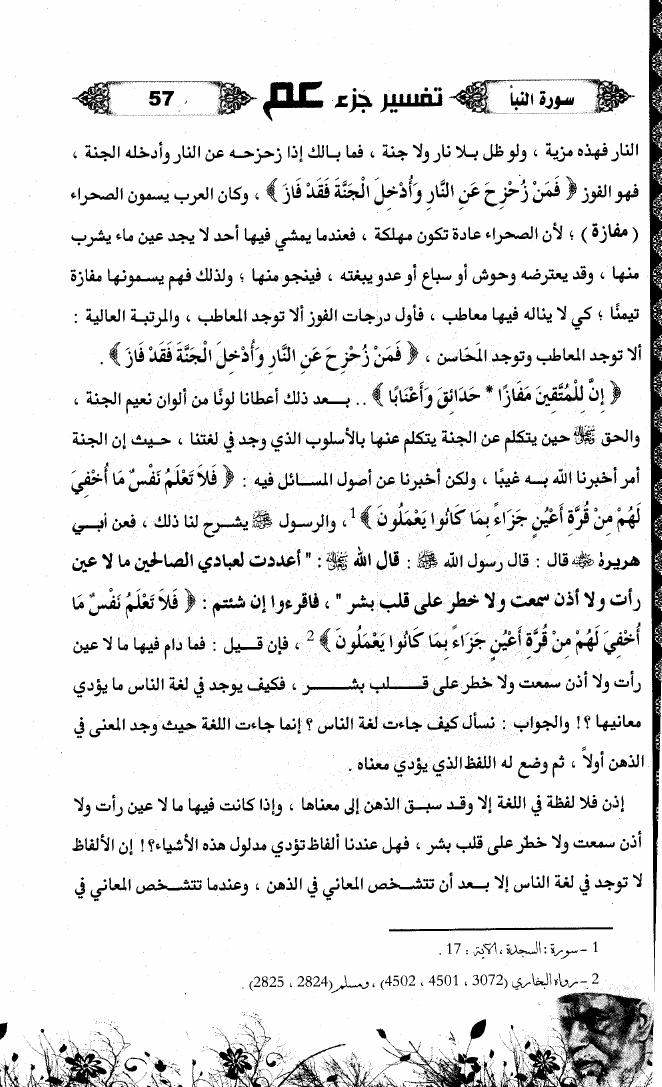 سورة النبأ
تفسير جزء عم
57
النار فهذه مزية ، ولو ظل بلا نار ولا جنة ، فما بالك إذا زحزحه عن النار وأدخله الجنة ،
فهو الفوز ﴿ فَمَنْ زُحْزِحَ عَنِ النَّارِ وَأُدْخِلَ الْجَنَّةَ فَقَدْ فَازَ ﴾ ، وكان العرب يسمون الصحراء
( مفازة ) ؛ لأن الصحراء عادة تكون مهلكة ، فعندما يمشي فيها أحد لا يجد عين ماء يشرب
منها ، وقد يعترضه وحوش أو سباع أو عدو يبغته ، فينجو منها ؛ ولذلك فهم يسمونها مفازة
تيمنًا ؛ كي لا يناله فيها معاطب ، فأول درجات الفوز ألا توجد المعاطب ، والمرتبة العالية :
ألا توجد المعاطب وتوجد المَحَاسن ، ﴿ فَمَنْ زُحْزِحَ عَنِ النَّارِ وَأُدْخِلَ الْجَنَّةَ فَقَدْ فَازَ ﴾ .
﴿ إِنَّ لِلْمُتَّقِينَ مَفَازًا * حَدَائِقَ وَأَعْنَابًا ﴾ .. بعد ذلك أعطانا لونًا من ألوان نعيم الجنة ،
والحق ﷻ حين يتكلم عن الجنة يتكلم عنها بالأسلوب الذي وجد في لغتنا ، حيث إن الجنة
أمر أخبرنا الله به غيبًا ، ولكن أخبرنا عن أصول المسائل فيه : ﴿ فَلاَ تَعْلَمُ نَفْسٌ مَا أُخْفِيَ
لَهُمْ مِنْ قُرَّةِ أَعْيُنٍ جَزَاءً بِمَا كَانُوا يَعْمَلُونَ ﴾1 ، والرسول ﷺ يشرح لنا ذلك ، فعن أبي
هريرة ﷺ قال : قال رسول الله ﷺ : قال الله ﷻ : " أعددت لعبادي الصالحين ما لا عين
رأت ولا أذن سمعت ولا خطر على قلب بشر " ، فاقرءوا إن شئتم : ﴿ فَلاَ تَعْلَمُ نَفْسٌ مَا
أُخْفِيَ لَهُمْ مِنْ قُرَّةِ أَعْيُنٍ جَزَاءً بِمَا كَانُوا يَعْمَلُونَ ﴾2 ، فإن قيل : فما دام فيها ما لا عين
رأت ولا أذن سمعت ولا خطر على قلب بشر ، فكيف يوجد في لغة الناس ما يؤدي
معانيها ؟! والجواب : نسأل كيف جاءت لغة الناس ؟ إنما جاءت اللغة حيث وجد المعنى في
الذهن أولاً ، ثم وضع له اللفظ الذي يؤدي معناه .
إذن فلا لفظة في اللغة إلا وقد سبق الذهن إلى معناها ، وإذا كانت فيها ما لا عين رأت ولا
أذن سمعت ولا خطر على قلب بشر ، فهل عندنا ألفاظ تؤدي مدلول هذه الأشياء؟! إن الألفاظ
لا توجد في لغة الناس إلا بعد أن تتشخص المعاني في الذهن ، وعندما تتشخص المعاني في
1 – سورة : السجدة ، الآية : 17 .
2 – رواه البخاري (3072 ، 4501 ، 4502) ، ومسلم (2824 ، 2825) .